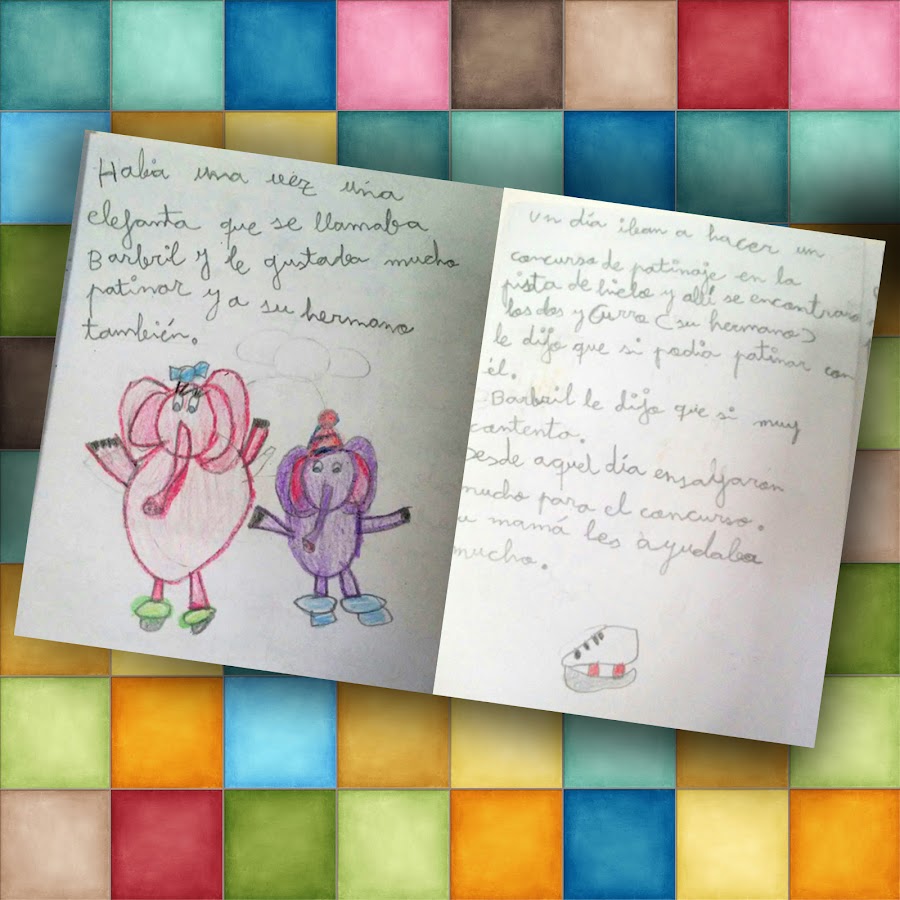 Habia una vez una
elefanta que se llamaba
Barbril y le gustaba mucho
patinar y a su hermano
también.
Un día iban a hacer un
concurso de patinaje en la
pista de hielo y allí se encontraron
los dos y Curro (su hermano)
le dijo que si podia patinar con
él.
Barbril le dijo que si muy
contenta.
Desde aquel día ensallaron
mucho para el concurso.
u mamá les ayudaba
mucho.